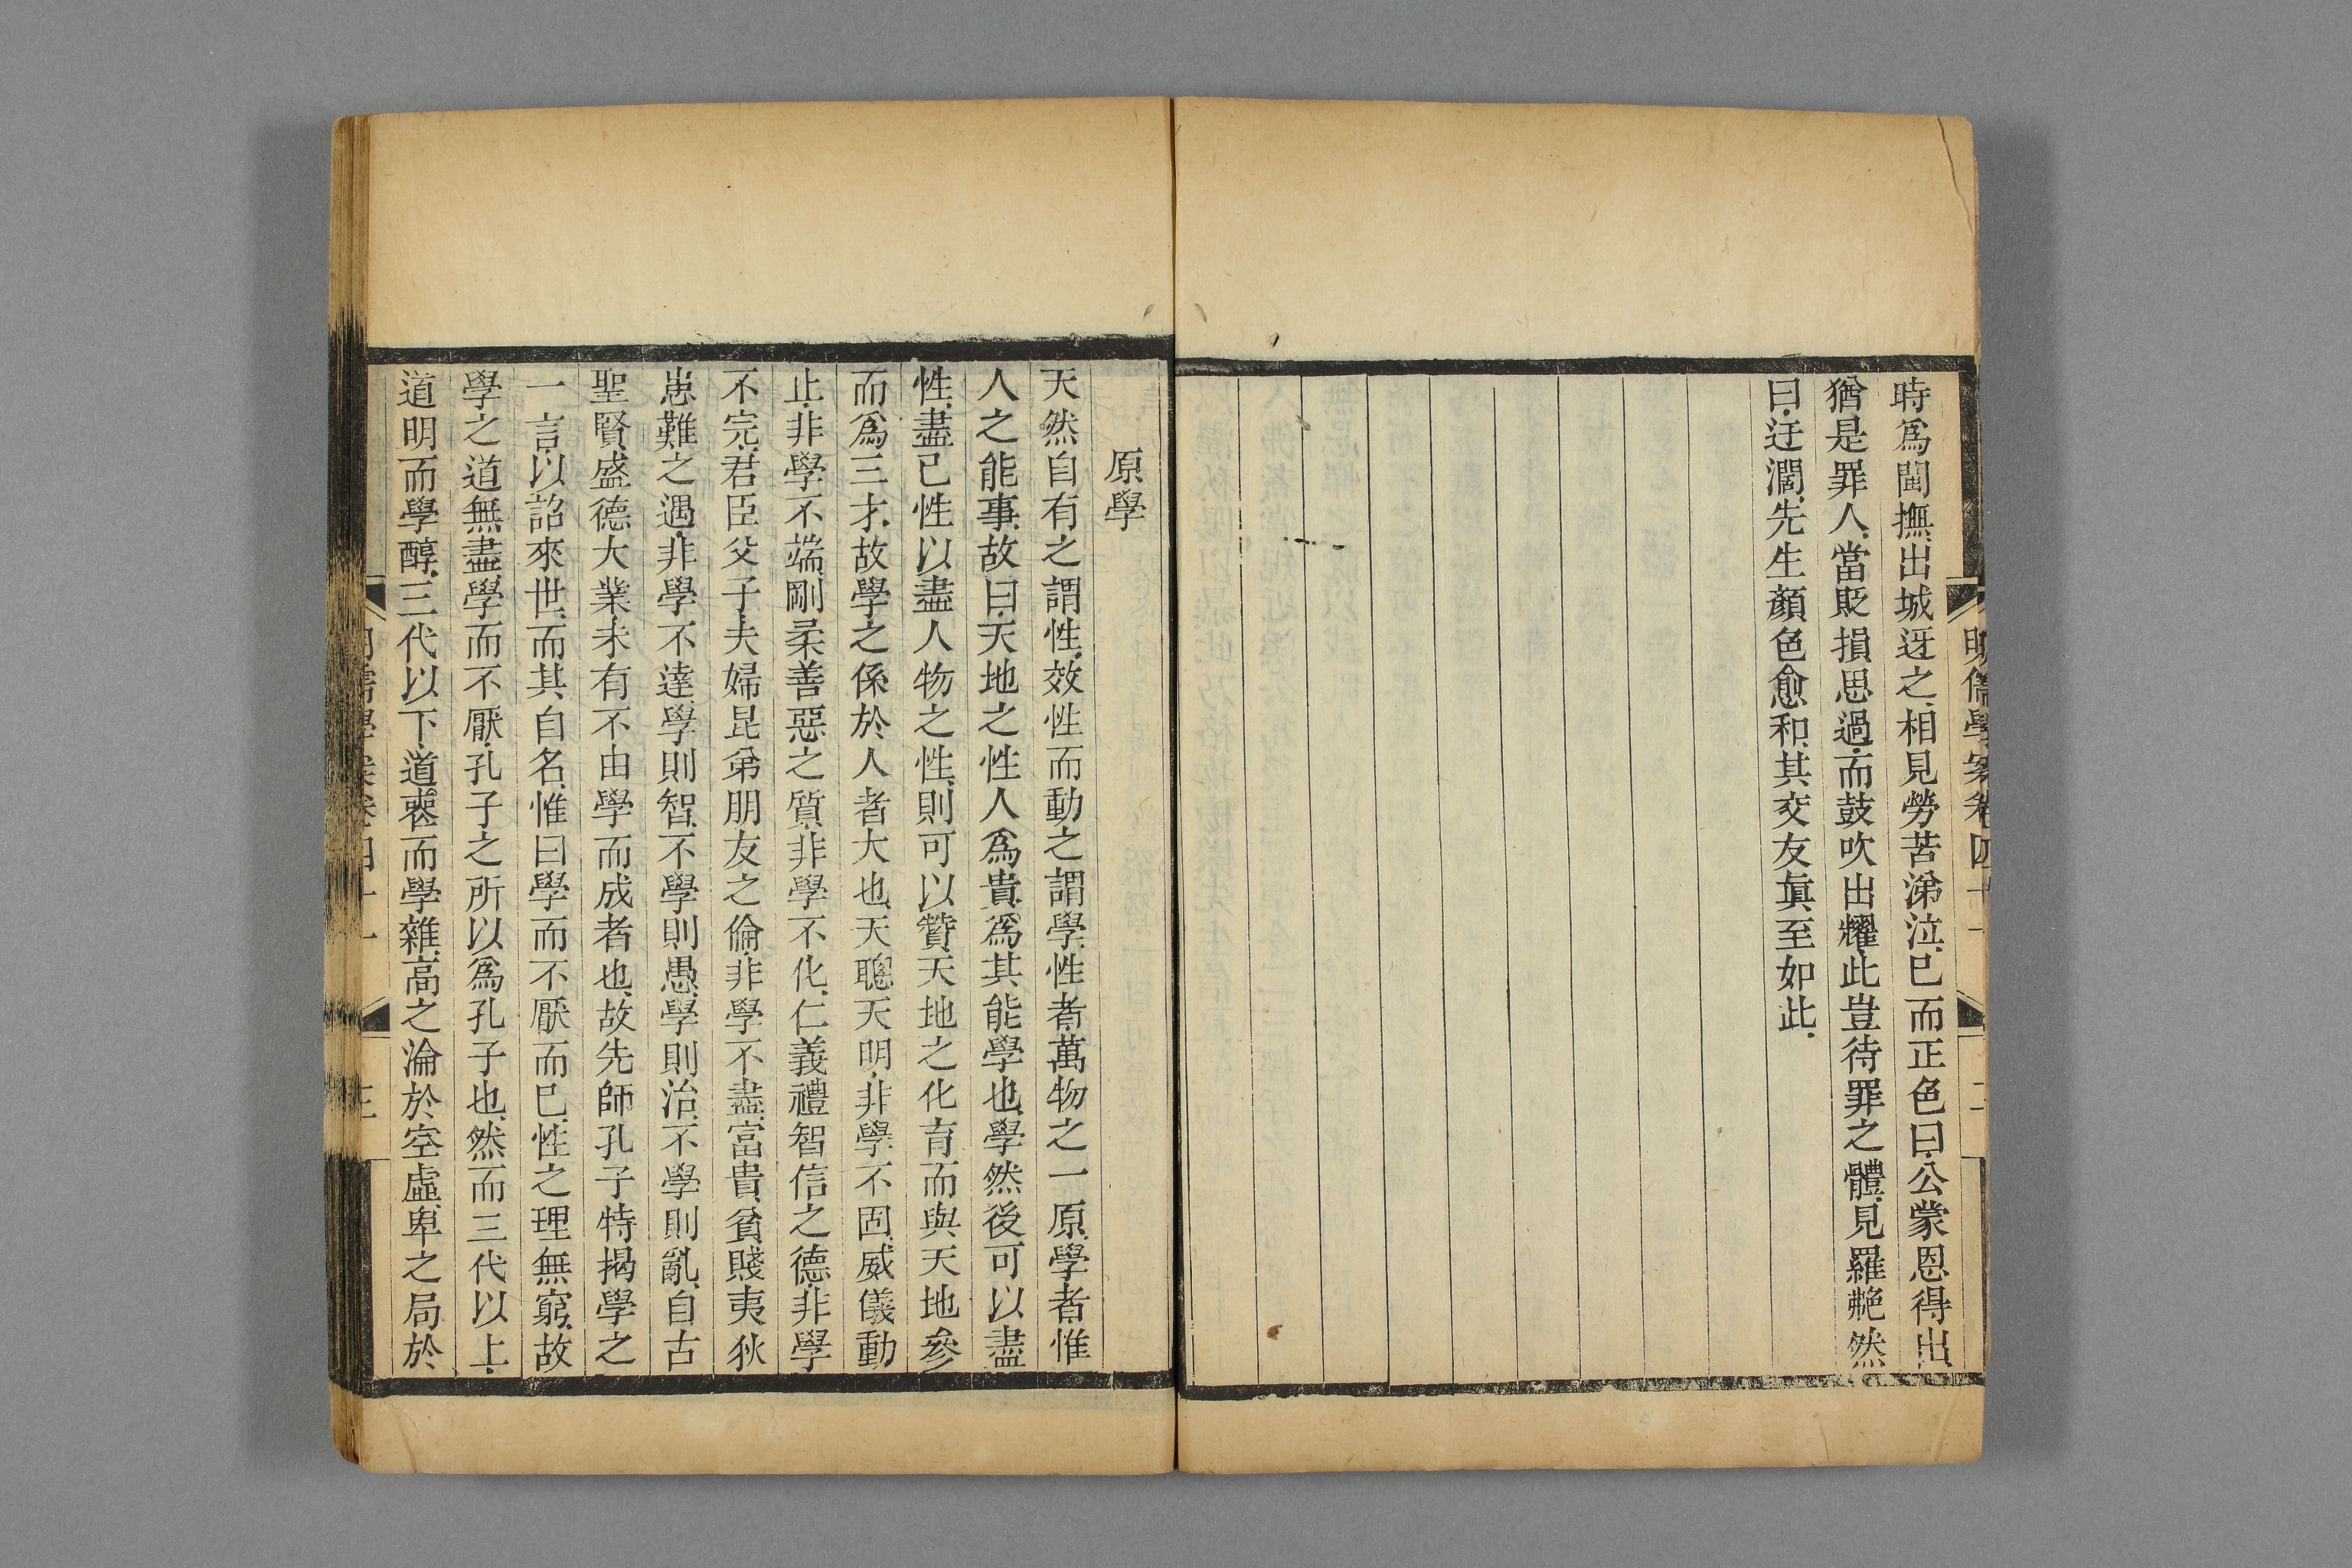 明儒學案卷四十一
二
時爲閩撫、出城迓之、相見勞苦涕泣、已而正色曰、公蒙恩得出、
猶是罪人、當貶損思過、而鼓吹出耀、此豈待罪之體、見羅艴然
曰、迂濶、先生顏色愈和、其交友眞至如此、
原學
天然自有之謂性、效性而動之謂學、性者、萬物之一原、學者、惟
人之能事、故曰、天地之性人爲貴、爲其能學也、學然後可以盡
性、盡己性以盡人物之性、則可以贊天地之化育而與天地參
而爲三才、故學之係於人者大也、天聰天明、非學不固、威儀動
止、非學不端、剛柔善惡之質、非學不化、仁義禮智信之德、非學
不完、君臣父子夫婦昆弟朋友之倫、非學不盡、富貴貧賤夷狄
患難之遇、非學不達、學則智、不學則愚、學則治、不學則亂、自古
聖賢、盛德大業、未有不由學而成者也、故先師孔子特揭學之
一言、以詔來世、而其自名、惟曰學而不厭而已、性之理無窮、故
學之道無盡、學而不厭、孔子之所以爲孔子也、然而三代以上、
道明而學醇、三代以下、道喪而學雜、高之淪於空虛、卑之局於
明儒學案卷四十一
三